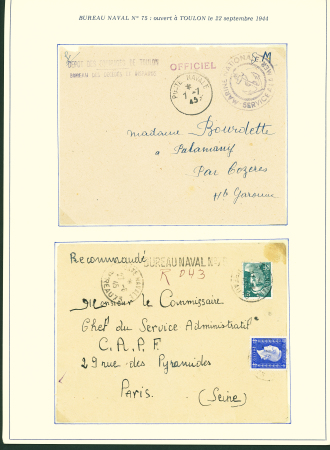 BUREAU NAVAL N° 75 : ouvert à TOULON le 22 septembre 1944
DEPOT DES EQUIPAGES DE TOULON
OFFICIEL
POSTE NAVALE
7 -7
45
Madame Bourdette
à Palaminy
Par Cazères
Hte Garonne
Recommandé
BUREAU NAVAL N°
043
Monsieur le Commissaire
Chef du Service Administratif
C.A.P.F.
29 rue des Pyramides
Paris.
(Seine)